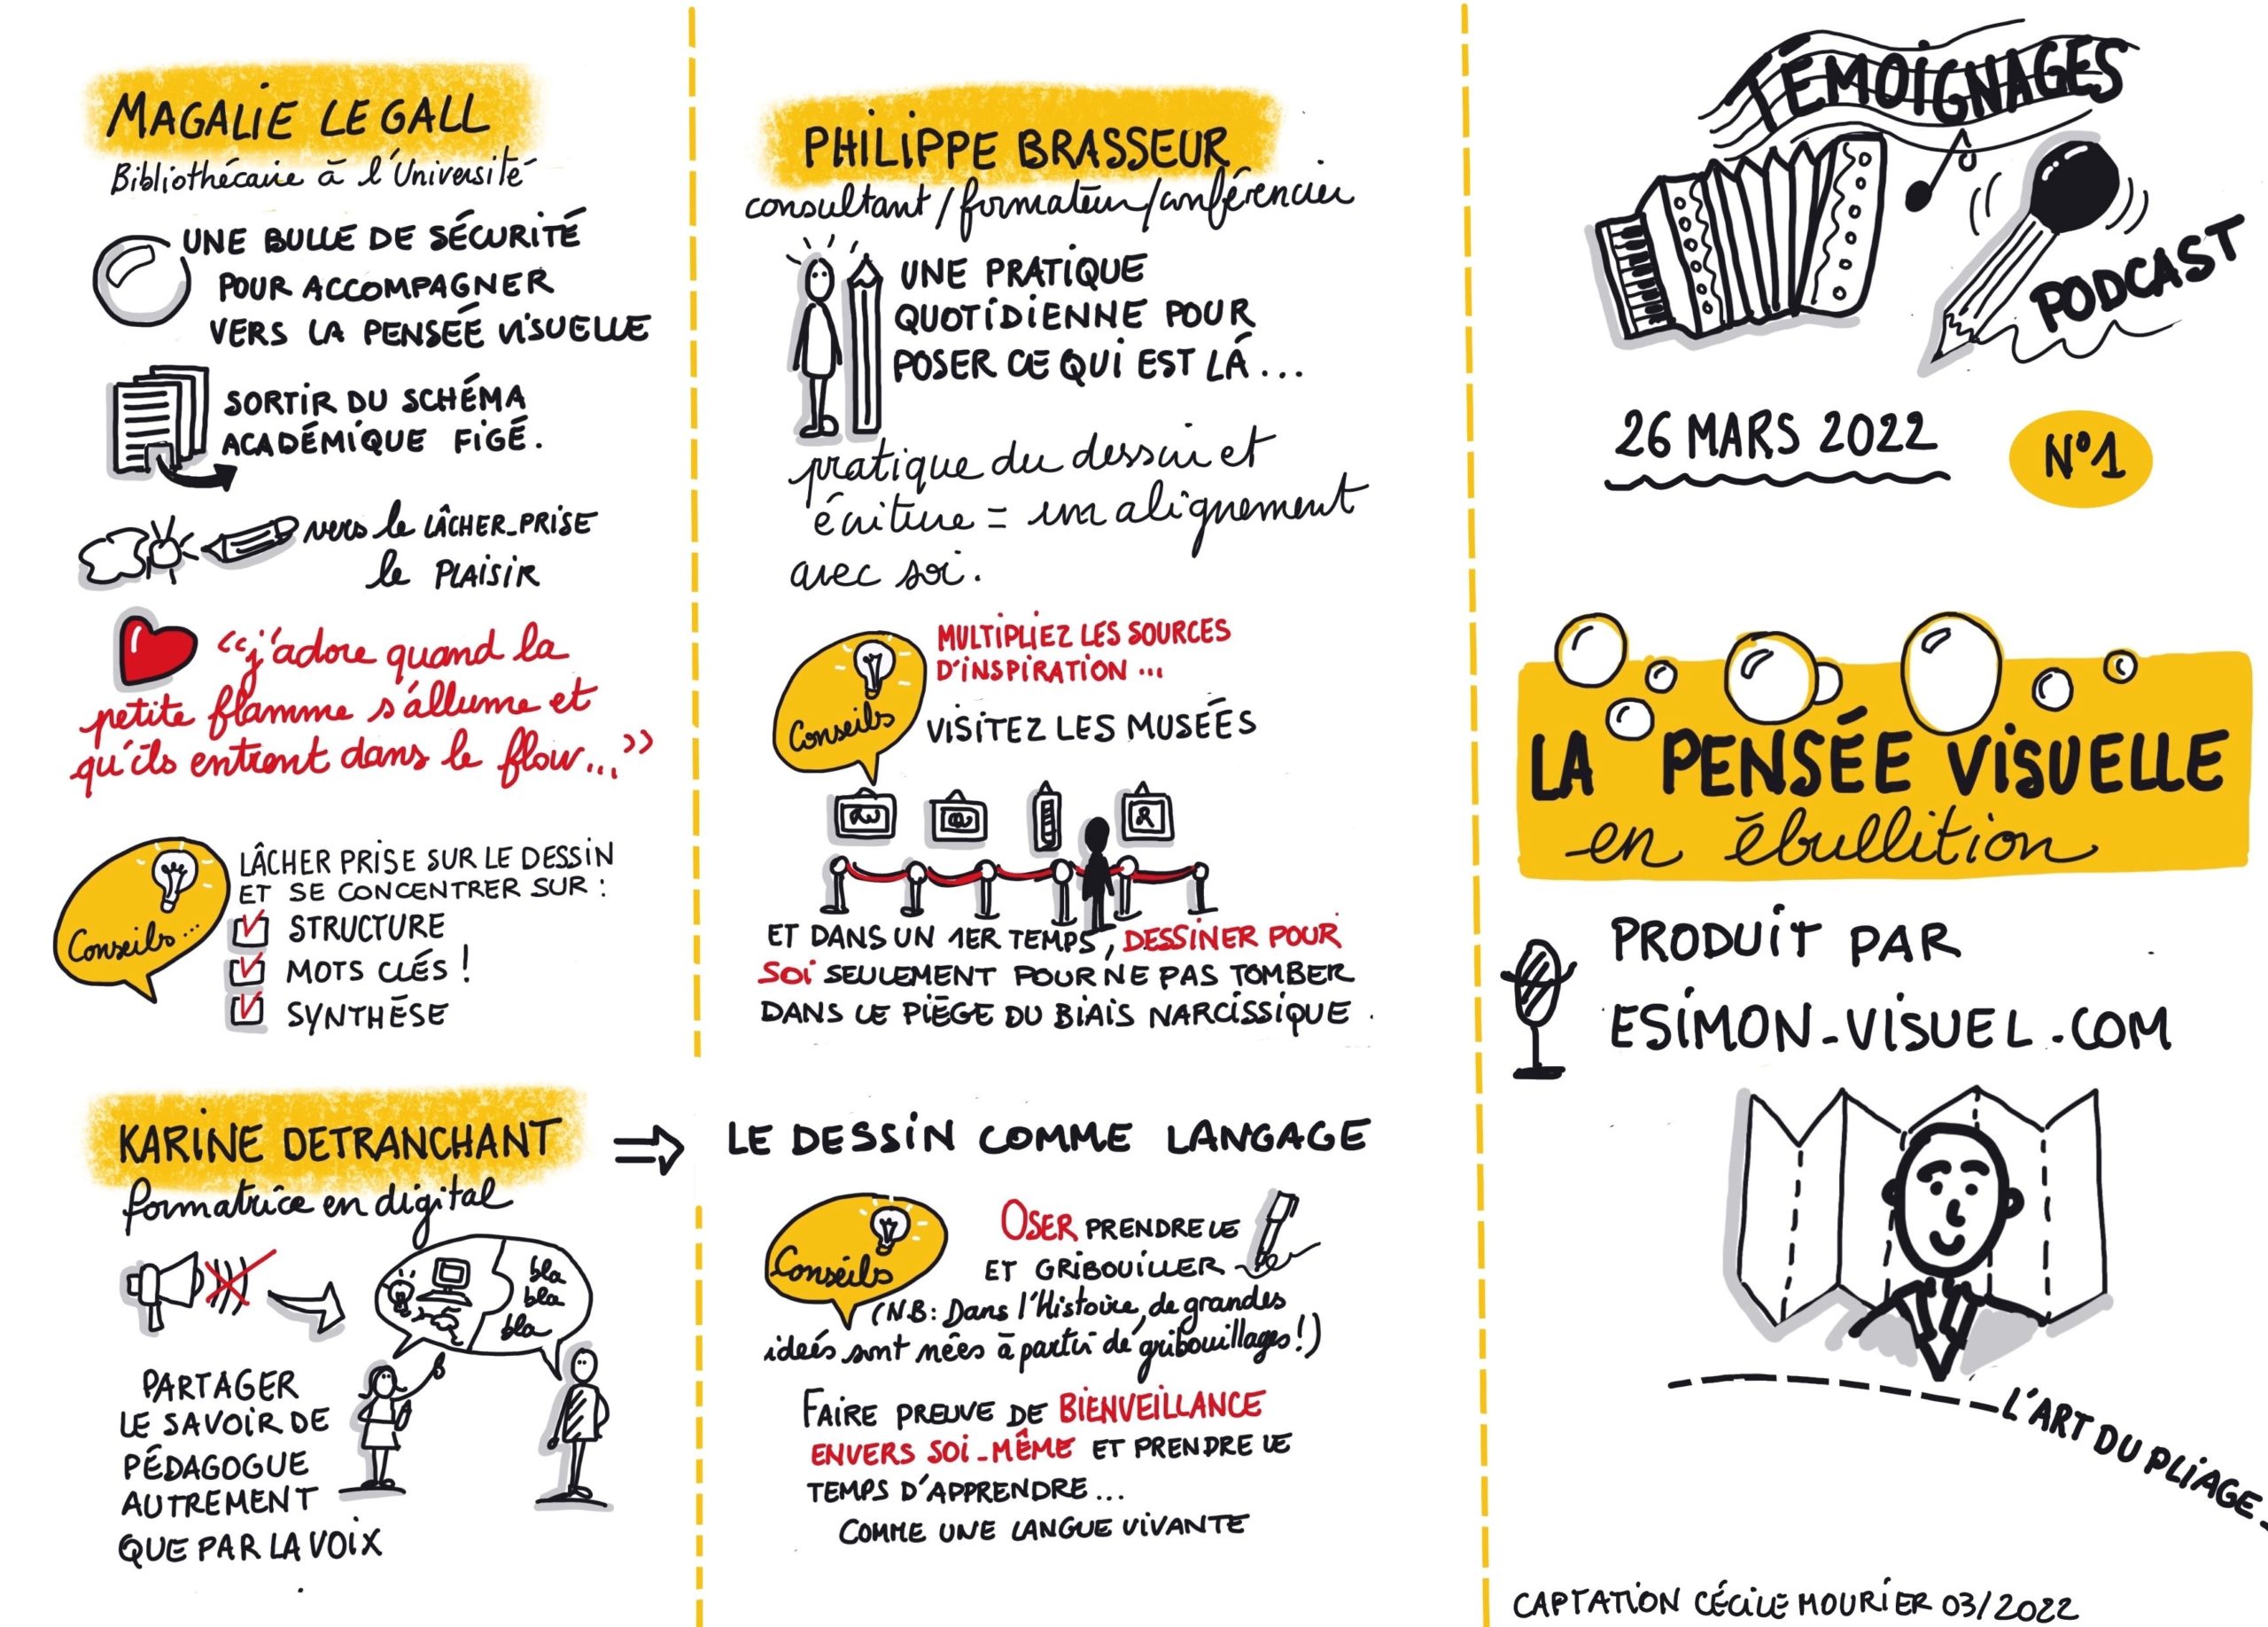 MAGALIE LE GALL
Bibliothécaire à l'Université
UNE BULLE DE SÉCURITÉ
POUR ACCOMPAGNER
VERS LA PENSÉE VISUELLE
SORTIR DU SCHÉMA
ACADÉMIQUE FIGÉ.
vers le LÂCHER-PRISE
le PLAISIR
"j'adore quand la
petite flamme s'allume et
qu'ils entrent dans le flow..."
Conseils...
LÂCHER PRISE SUR LE DESSIN
ET SE CONCENTRER SUR :
STRUCTURE
MOTS CLÉS !
SYNTHÈSE
KARINE DETRANCHANT
formatrice en digital
bla
bla
bla
PARTAGER
LE SAVOIR DE
PÉDAGOGUE
AUTREMENT
QUE PAR LA VOIX
PHILIPPE BRASSEUR
consultant/formateur/conférencier
UNE PRATIQUE
QUOTIDIENNE POUR
POSER CE QUI EST LÀ...
pratique du dessin et
écriture = un alignement
avec soi.
Conseils
MULTIPLIEZ LES SOURCES
D'INSPIRATION ...
VISITEZ LES MUSÉES
ET DANS UN 1ER TEMPS, DESSINER POUR
SOI SEULEMENT POUR NE PAS TOMBER
DANS LE PIÈGE DU BIAIS NARCISSIQUE.
LE DESSIN COMME LANGAGE
Conseils
OSER PRENDRE LE
ET GRIBOUILLER
(N.B: Dans l'Histoire, de grandes
ideés sont nées à partir de gribouillages!)
FAIRE PREUVE DE BIENVEILLANCE
ENVERS SOI-MÊME ET PRENDRE LE
TEMPS D'APPRENDRE...
COMME UNE LANGUE VIVANTE
TÉMOIGNAGES
PODCAST
26 MARS 2022
N°1
LA PENSÉE VISUELLE
en ébullition
PRODUIT PAR
ESIMON-VISUEL.COM
L'ART DU PLIAGE.
CAPTATION CÉCILE MOURIER 03/2022